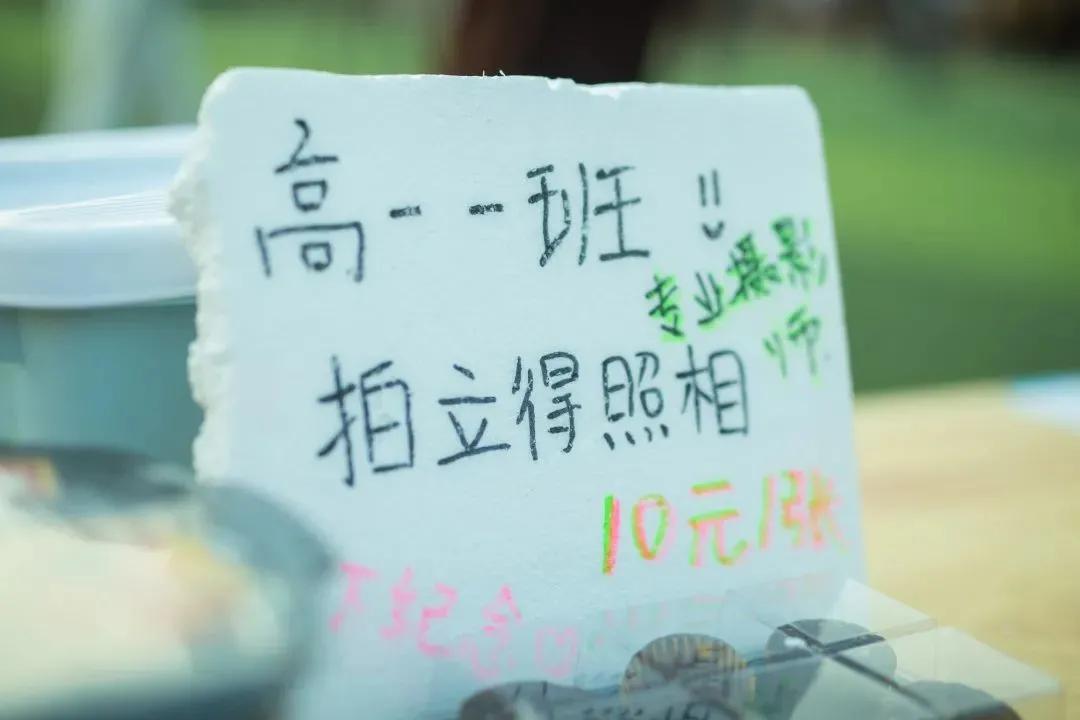 高一一班
专业摄影
师
拍立得照相
10元/张
纪念